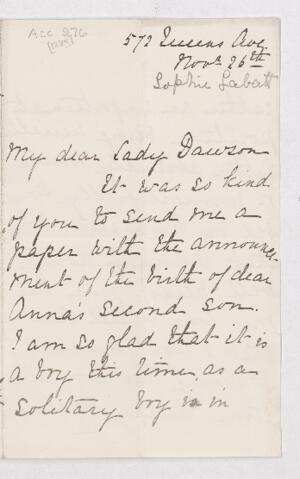 Acc 976
572 Queens Ave
Nov. 26th
Sophie Labatt
My dear Lady Dawson
It was so kind
of you to send me a
paper with the announce
ment of the birth of dear
Anna's second son.
I am so glad that it is
a boy this time, as a
solitary boy is in